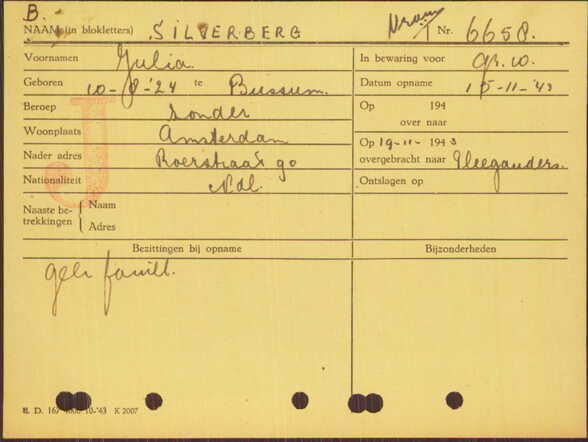 B.
NAAM (in blokletters) SILVERBERG Vrouw Nr. 6658.
Voornamen Julia. In bewaring voor gr. w.
Geboren 10-8-'24 te Bussum. Datum opname 15-11-'43
Beroep zonder Op 194
over naar
Woonplaats Amsterdam
J
Nader adres Roerstraat 90 Op 19-11-1943
overgebracht naar
Nationaliteit Ndl. Ontslagen op
Naaste betrekkingen { Naam
Adres
Bezittingen bij opname Bijzonderheden
geb. famill.
H. D. 167 10-'43 K 2007